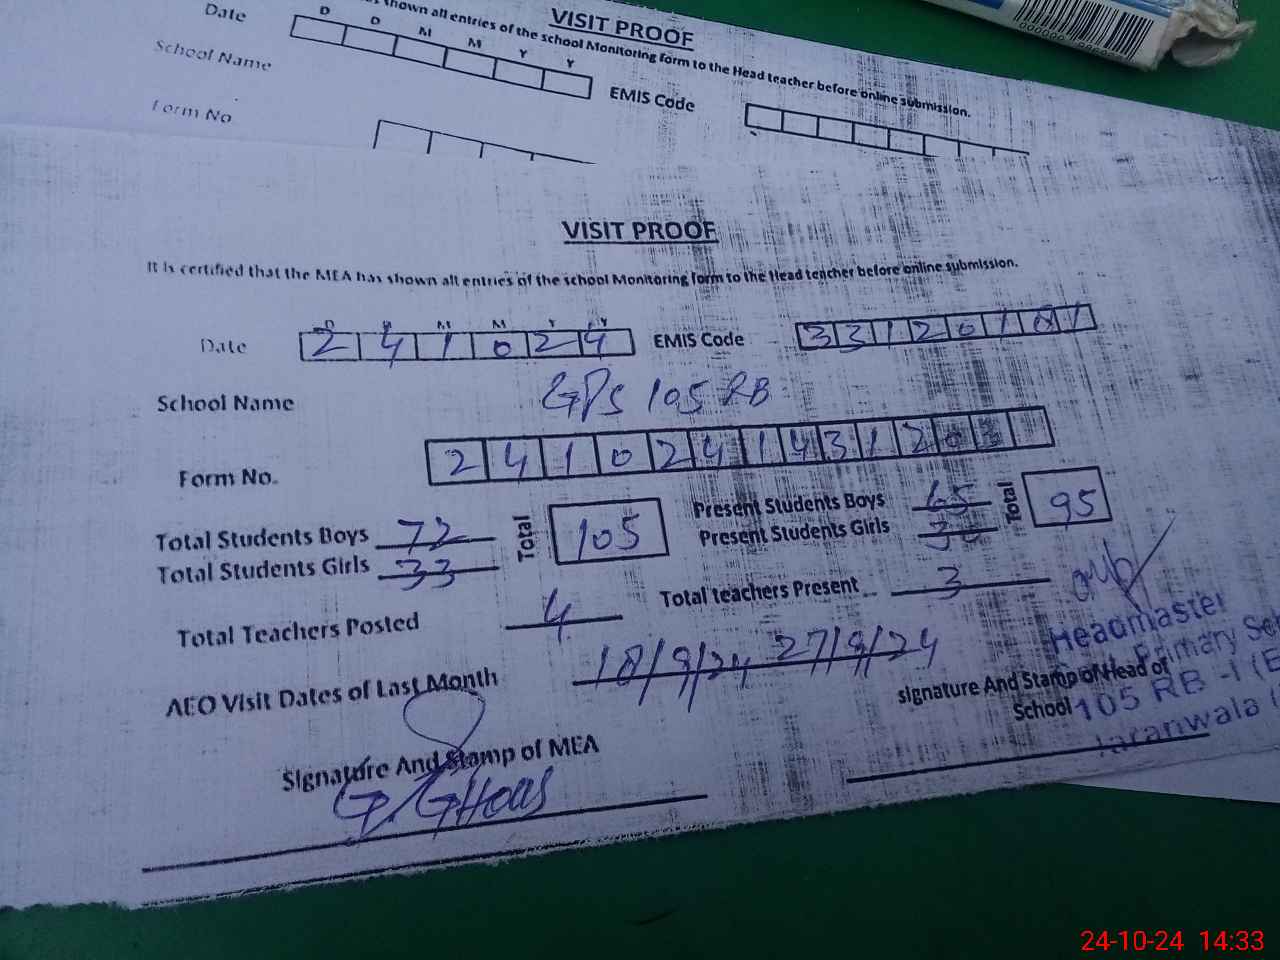 VISIT PROOF
shown all entries of the school Monitoring form to the Head teacher before online submission.
Date D D M M Y Y
School Name EMIS Code
Form No
VISIT PROOF
It is certified that the MEA has shown all entries of the school Monitoring form to the Head teacher before online submission.
D D M M Y Y
Date 2 4 1 0 2 4 EMIS Code 3 3 1 2 0 1 0 1
School Name GPS 105 RB
Form No. 2 4 1 0 2 4 1 4 3 1 2 0
Total Students Boys 72 Total 105 Present Students Boys 65 Total 95
Total Students Girls 33 Present Students Girls 30
Total Teachers Posted 4 Total teachers Present 3
AEO Visit Dates of Last Month 18/9/24 27/9/24
Signature And Stamp of Head of School
Headmaster
Primary
105 RB -I (E
Jaranwala
Signature And Stamp of MEA
24-10-24 14:33